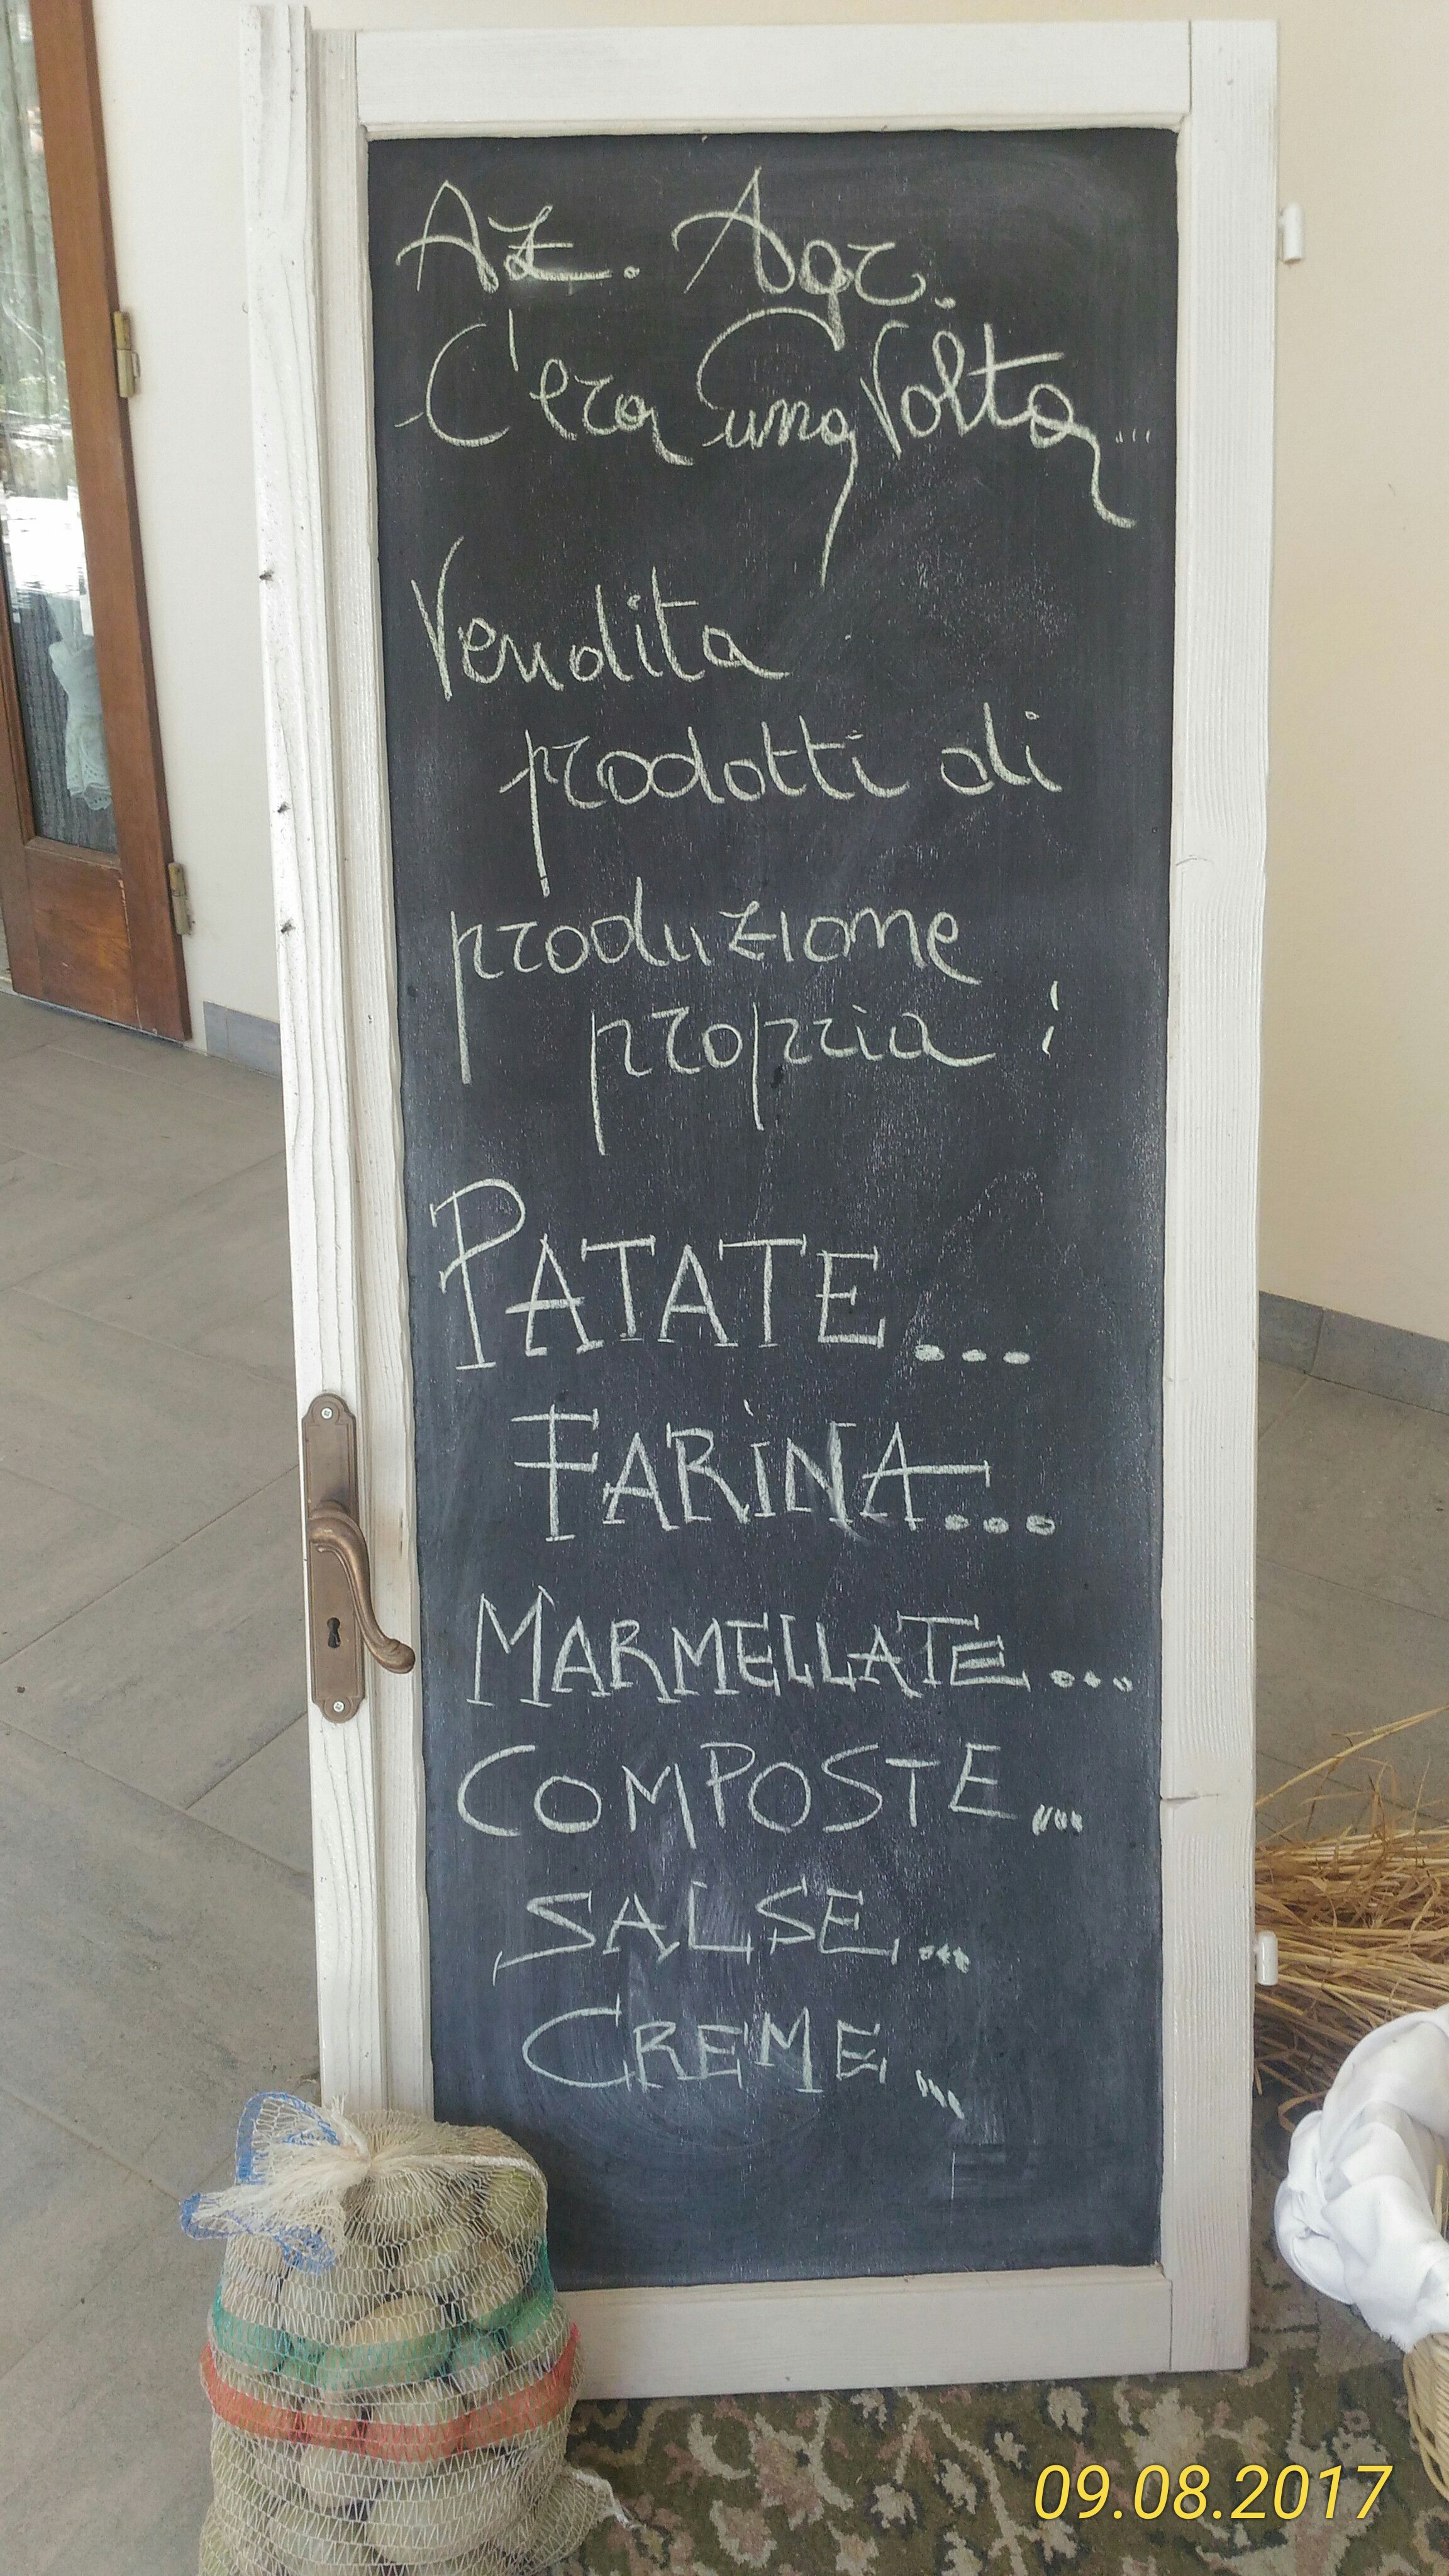 Az. Agr.
C'era una Volta...
Vendita
prodotti di
produzione
propria :
PATATE...
FARiNA...
MARMELLATE...
COMPOSTE...
SALSE...
CREME...
09.08.2017